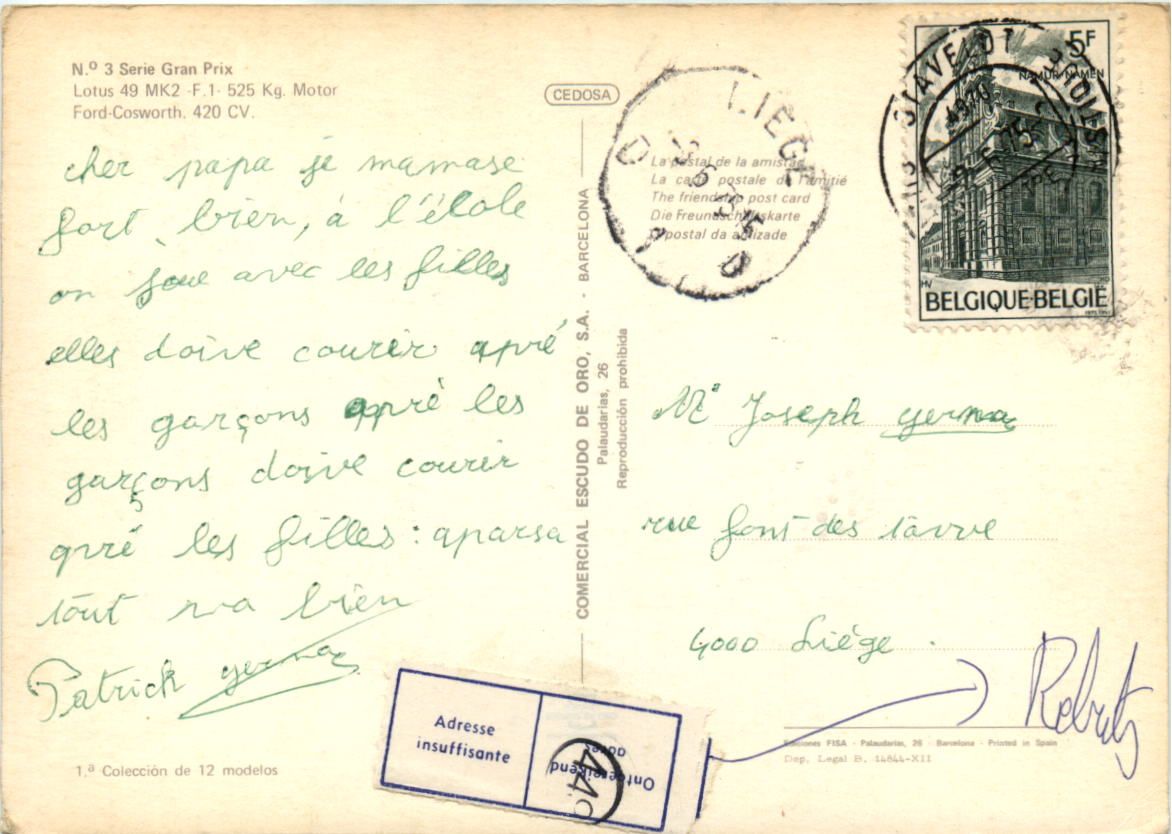 N.º 3 Serie Gran Prix
Lotus 49 MK2 -F.1- 525 Kg. Motor
Ford-Cosworth. 420 CV.
cher papa je mamase
fort, bien, á l'école
on joue avec les filles
elles doive courir apré
les garçons apré les
garçons doive courir
apré les filles: aparsa
tout va bien
Patrick germa
1.ª Colección de 12 modelos
CEDOSA
COMERCIAL ESCUDO DE ORO, S.A. - BARCELONA
Palaudarias, 26
Reproducción prohibida
LIEGE
La postal de la amistad
La carte postale de l'amitié
The friendship post card
Die Freundschaftskarte
O postal da amizade
STAVELOT
4970
5F
NAMUR-NAMEN
BELGIQUE-BELGIË
Mr Joseph germa
rue font des tavve
4000 Liége.
Adresse
insuffisante
Ontoereikend
adres
449
Ediciones FISA - Palaudarias, 26 - Barcelona - Printed in Spain
Dep. Legal B. 14844-XII